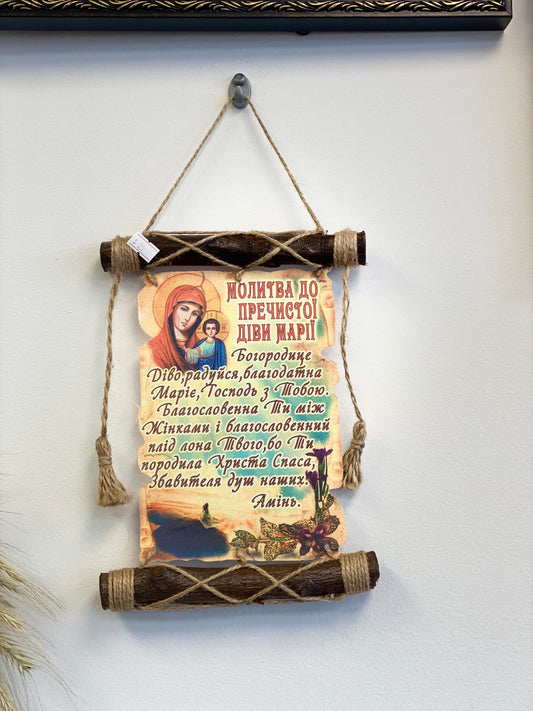 МОЛИТВА ДО
ПРЕЧИСТОЇ
ДІВИ МАРІЇ
Богородице
Діво, радуйся, благодатна
Маріє, Господь з Тобою.
Благословенна Ти між
Жінками і благословенний
плід лона Твого, бо Ти
породила Христа Спаса,
Збавителя душ наших.
Амінь.